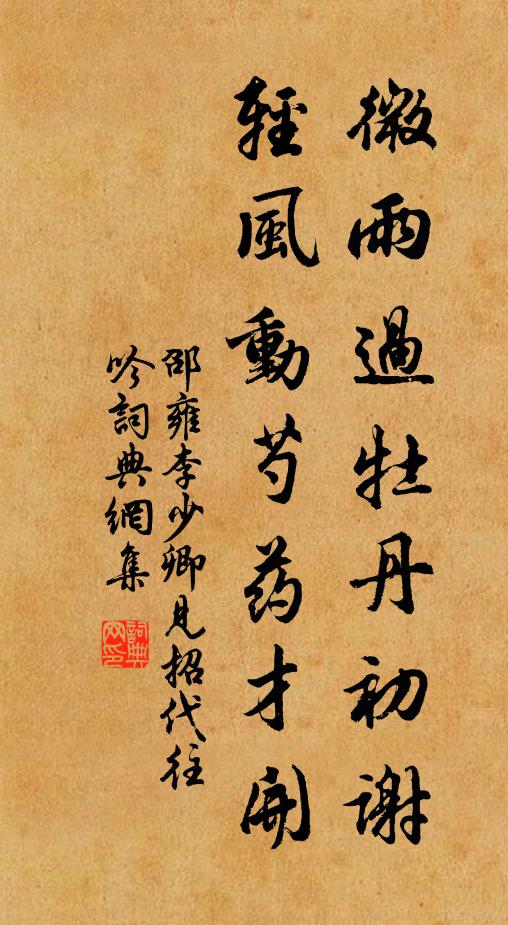 微雨過牡丹初謝
輕風動芍药才開
邵雍李少卿見招代往
吟詞典網集
詞典
网印